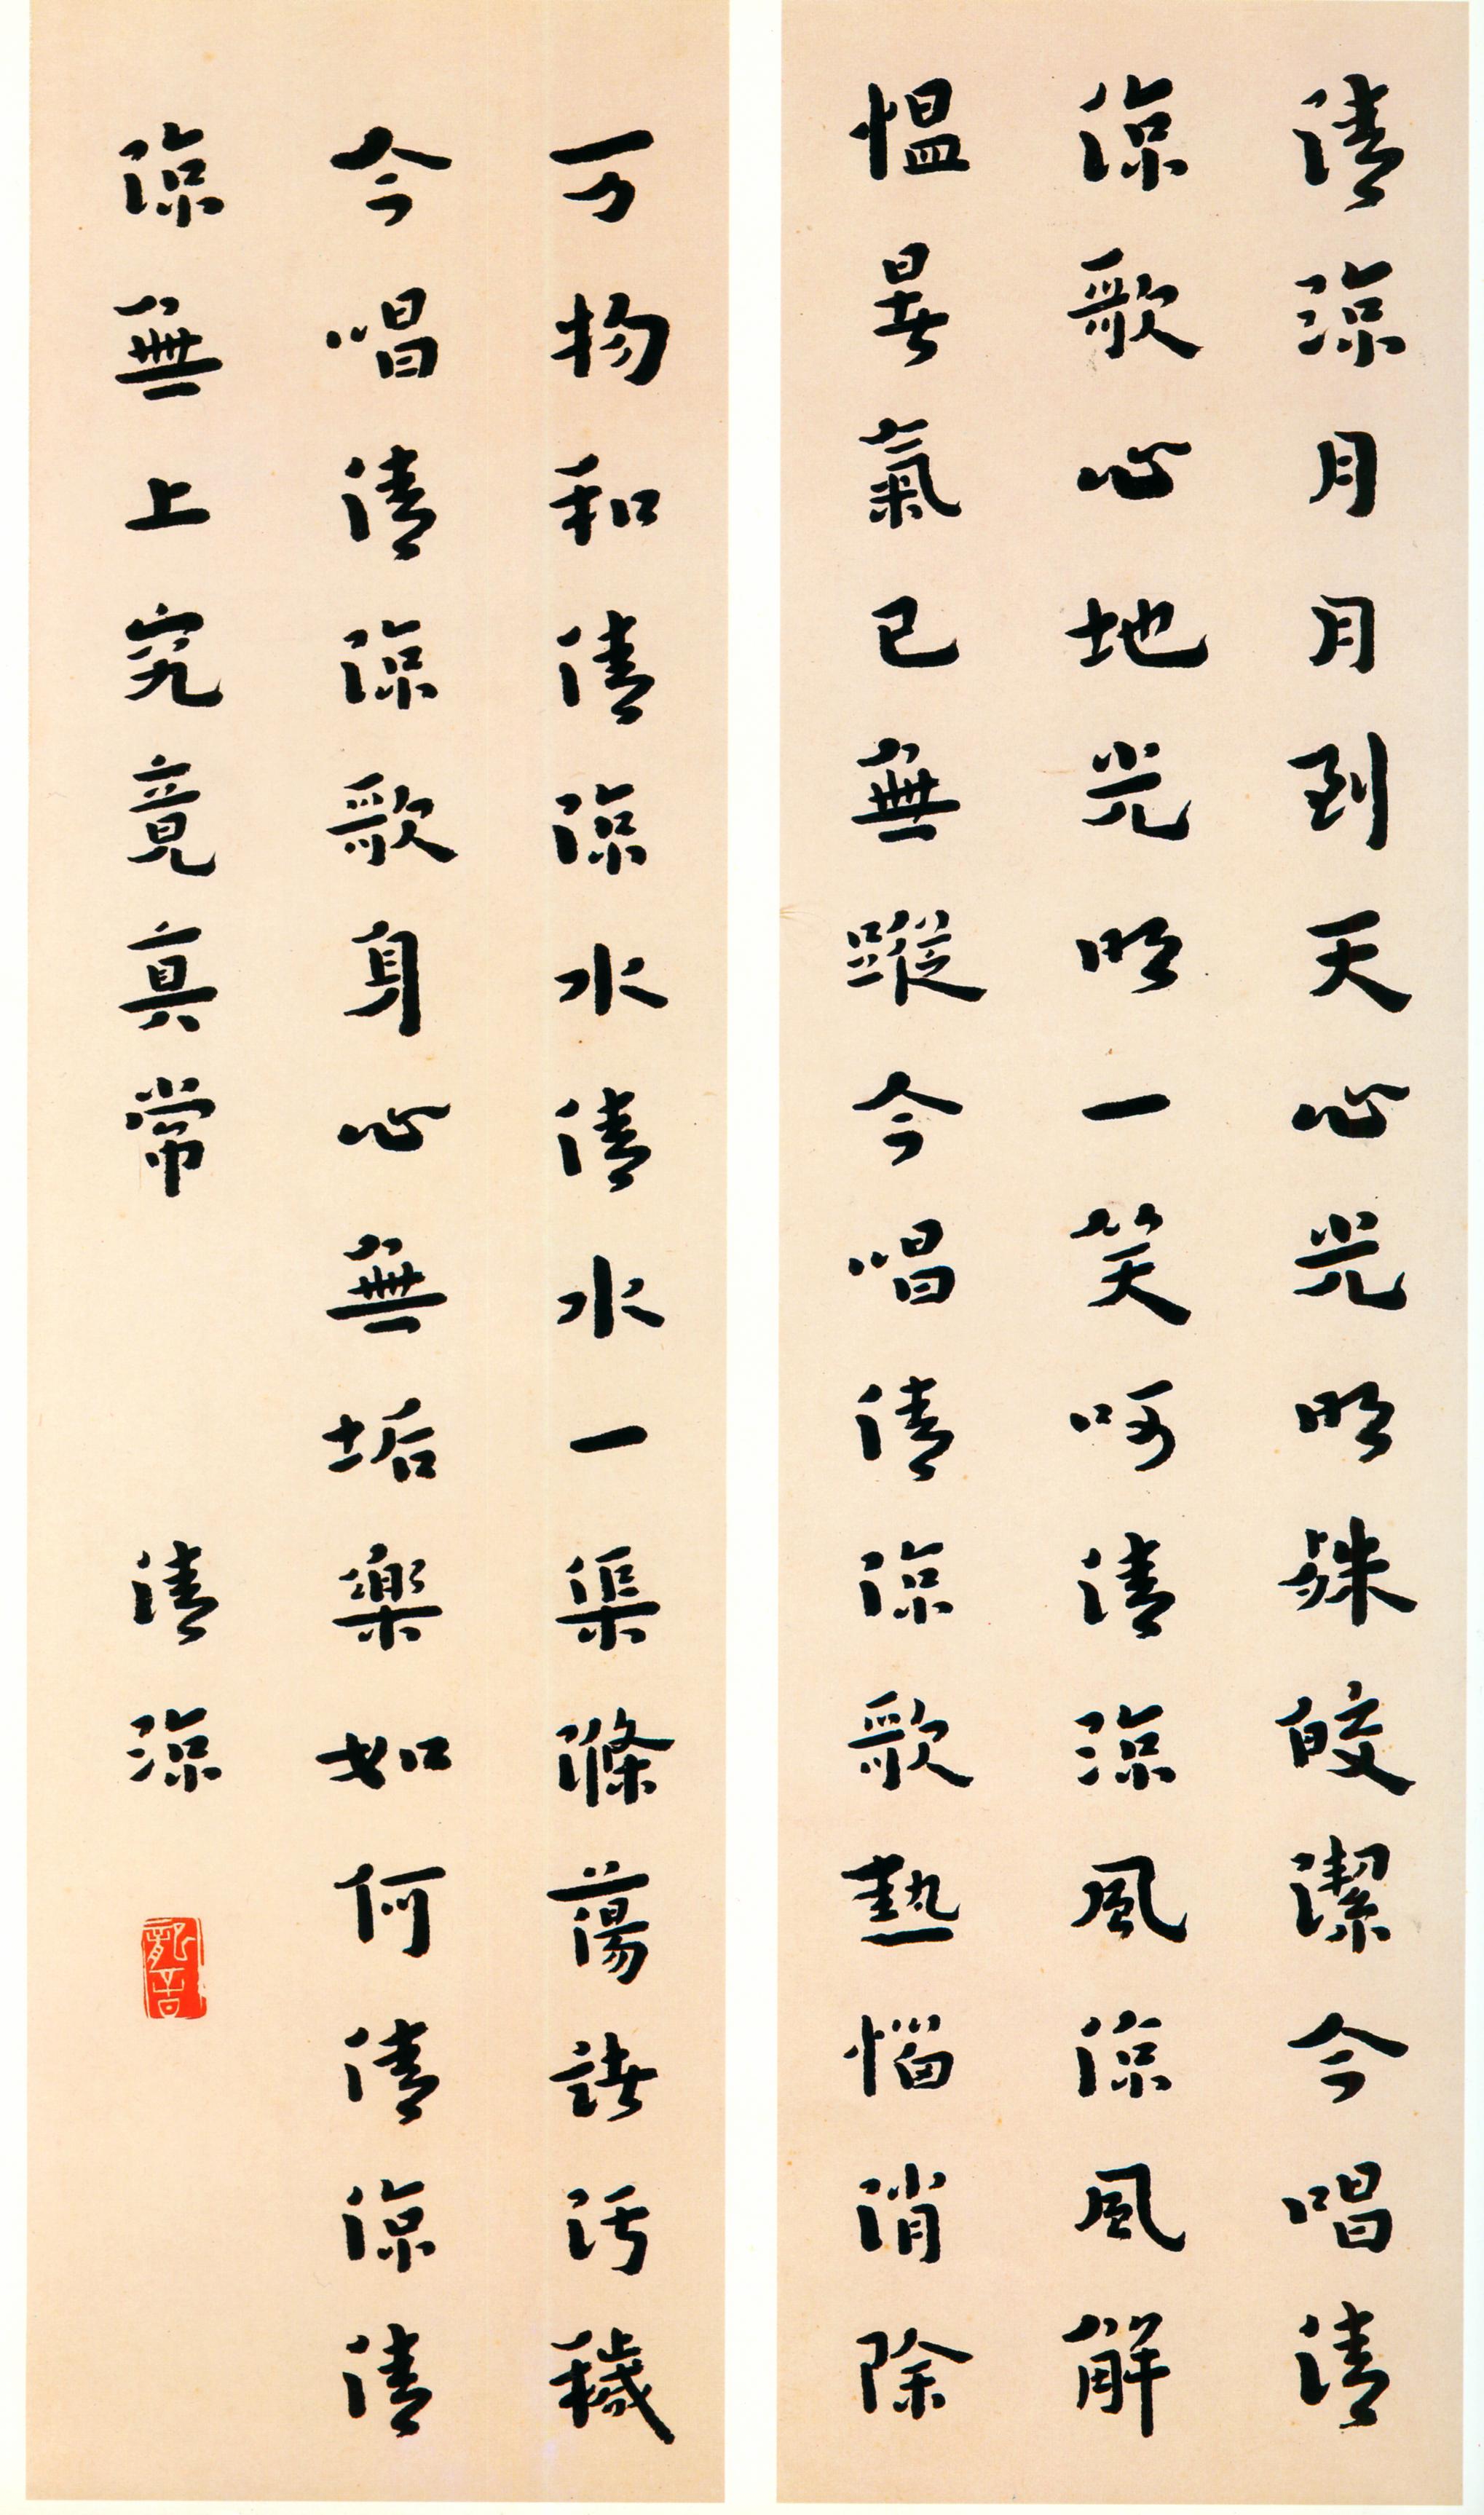 清涼月月到天心光明殊皎潔今唱清
涼歌心地光明一笑呵清涼風涼風解
慍暑氣已無蹤今唱清涼歌熱惱消除
万物和清涼水清水一渠滌蕩諸污穢
今唱清涼歌身心無垢樂如何清涼清
涼無上究竟真常
清涼
龍音